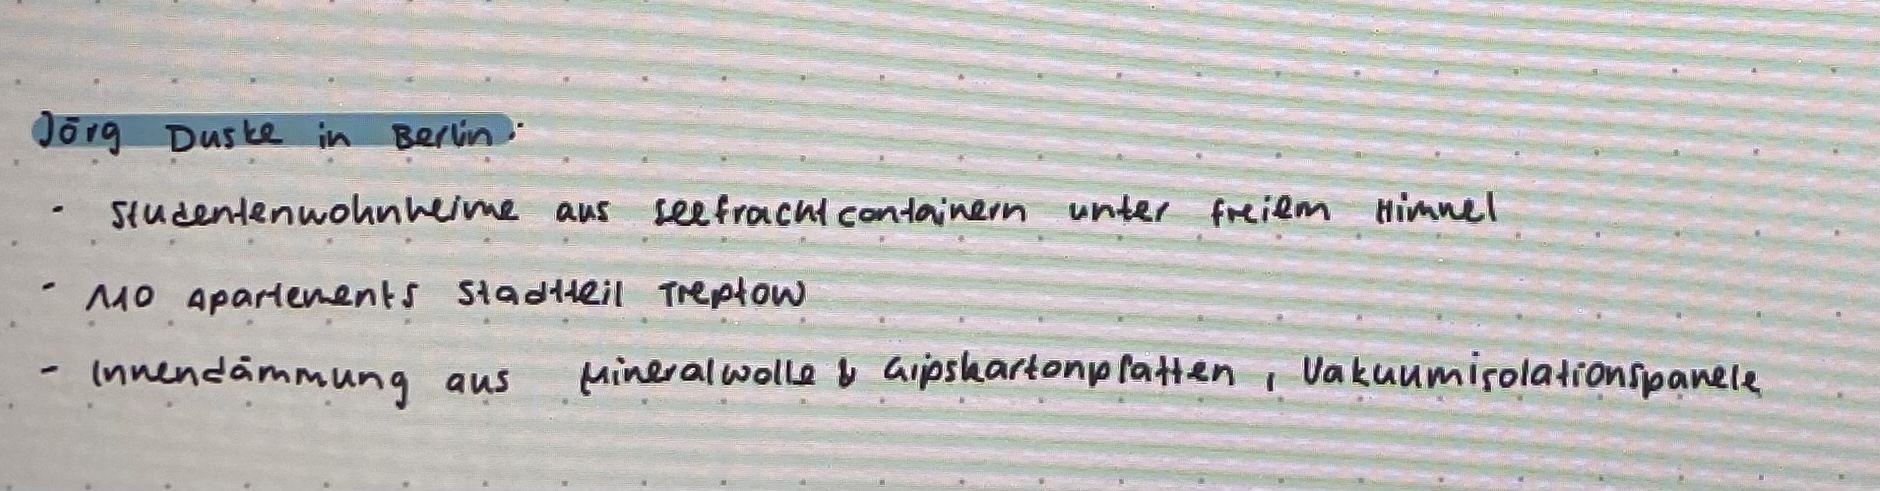 Jörg Duske in Berlin:
- Studentenwohnheime aus Seefrachtcontainern unter freiem Himmel
- 110 Apartements Stadtteil Treptow
- Innendämmung aus Mineralwolle & Gipskartonplatten, Vakuumisolationspanele